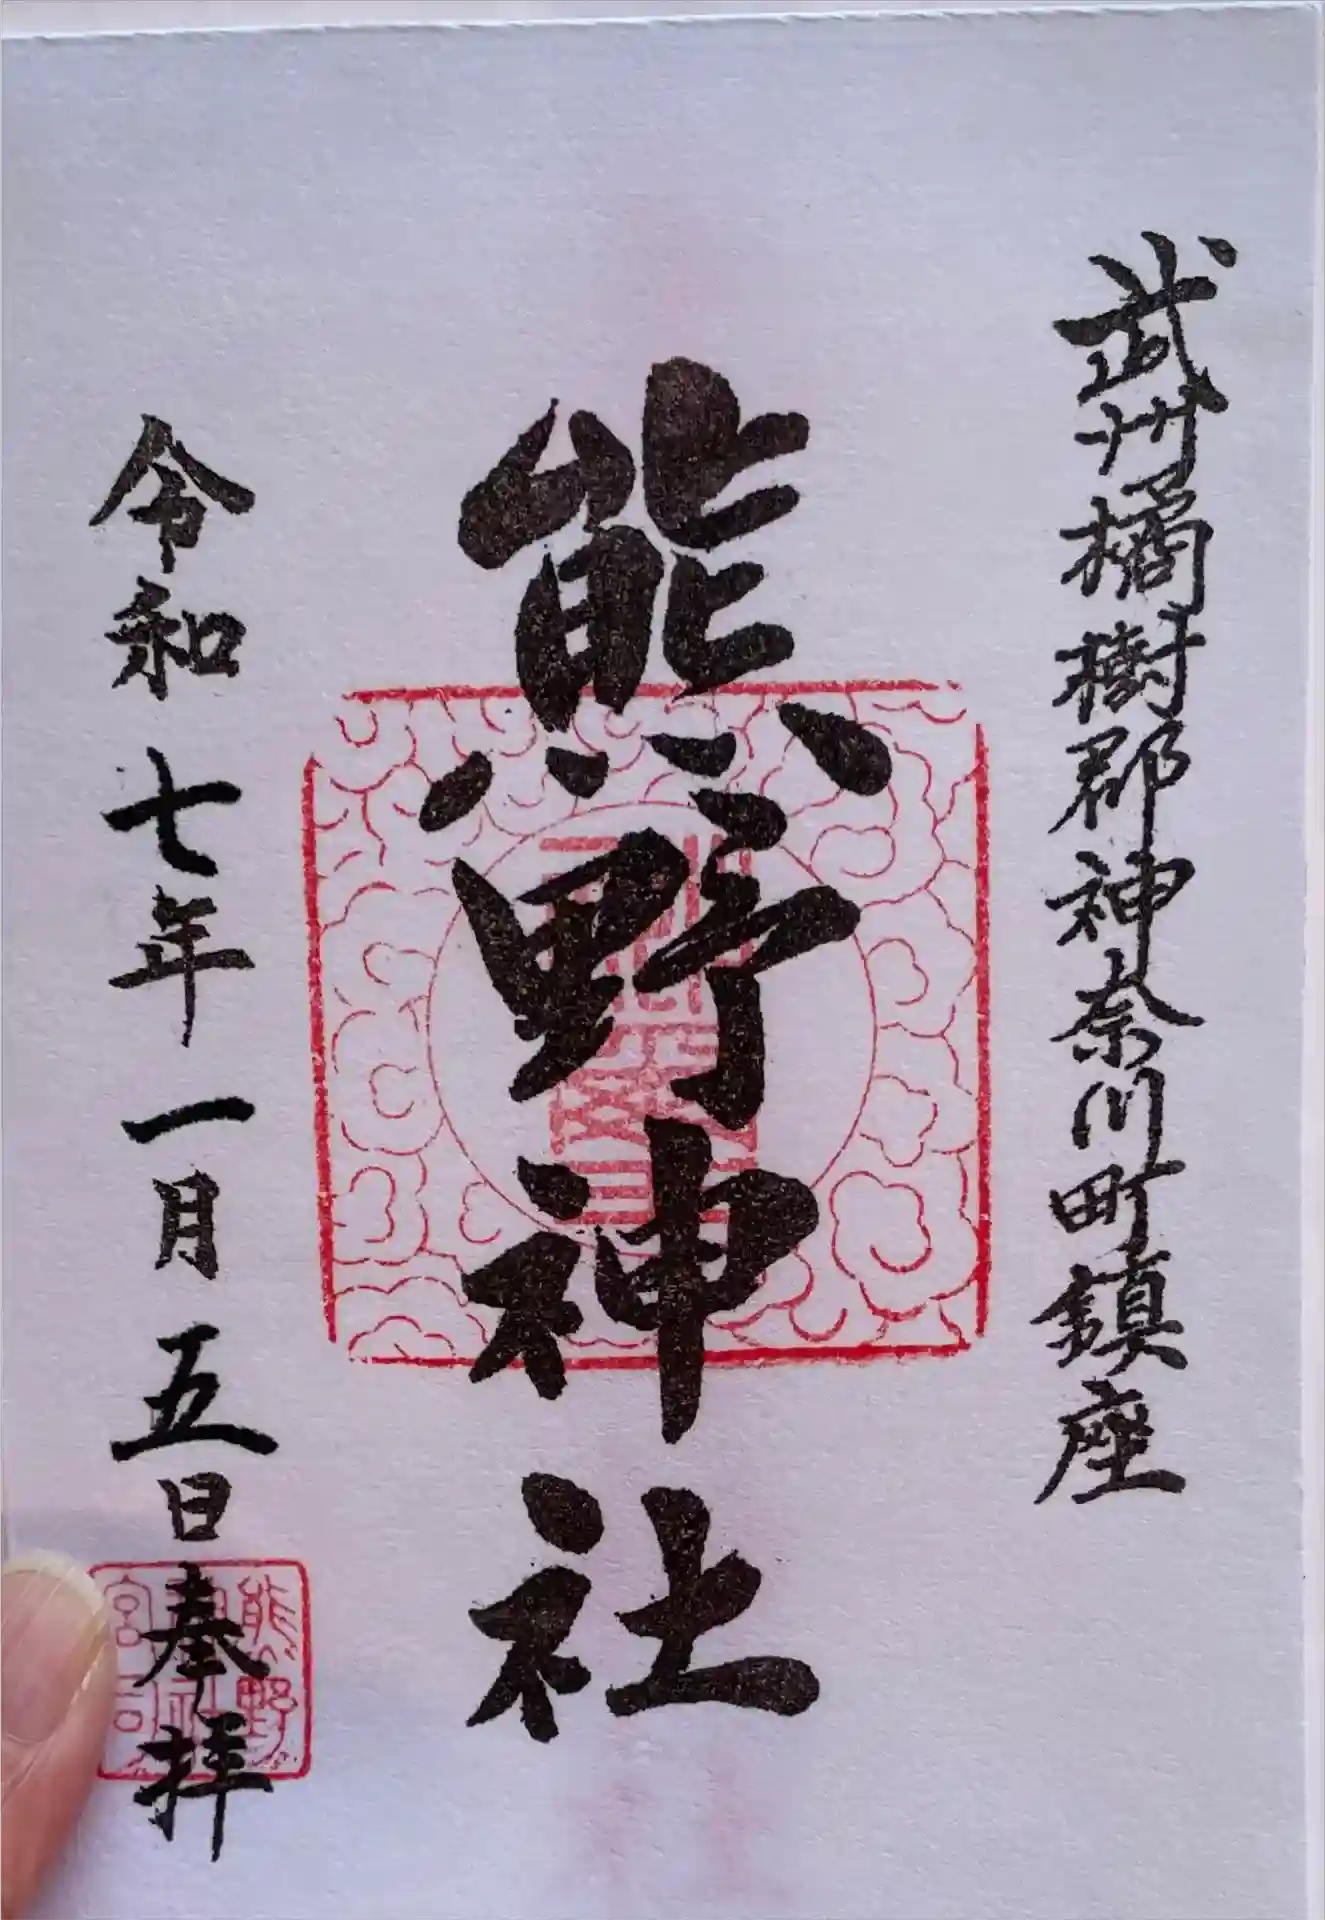 武州橘樹郡神奈川町鎮座
熊野神社
令和七年一月五日奉拝
熊野
神社
宮司